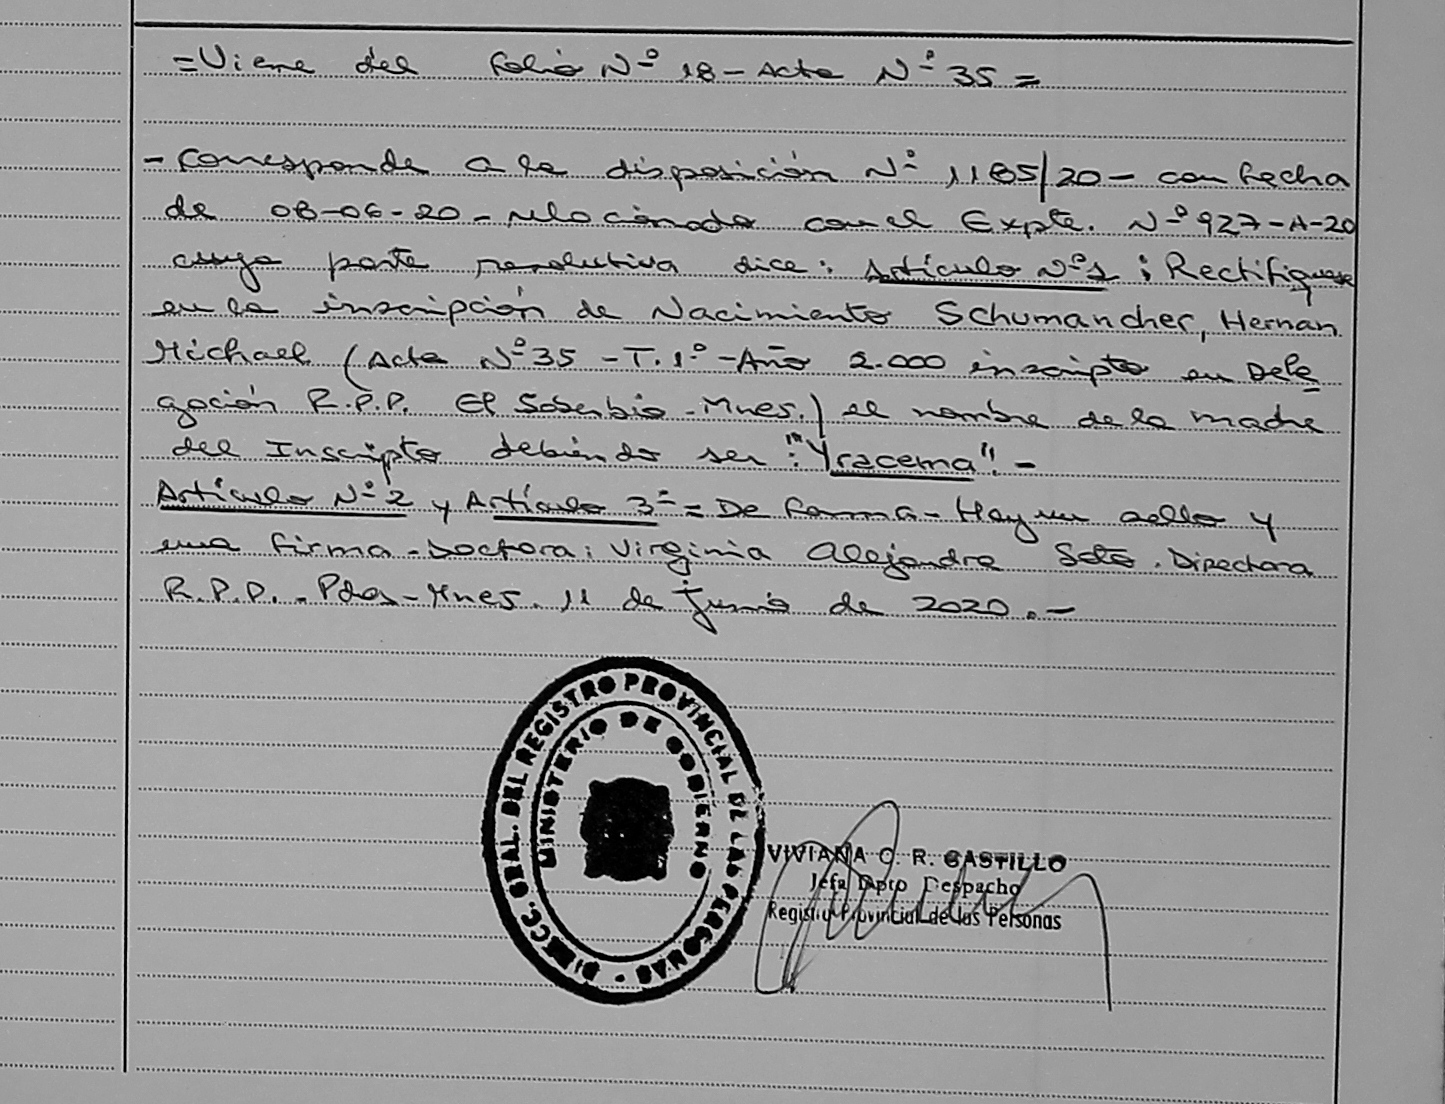 =Viene del folio Nº 18-Acta Nº 35=
- Corresponde a la disposición Nº 1185/20 - con fecha
de 08-06-20 - relacionado con el Expte. Nº 927-A-20
cuya parte resolutiva dice: Artículo Nº1: Rectifiquese
en la inscripción de Nacimiento Schumancher, Hernan
Michael (Acta Nº35 - T.1º - Año 2.000 inscripto en Dele
gación R.P.P. El Soberbio - Mnes.) el nombre de la madre
del Inscripto debiendo ser: "Yracema". -
Artículo Nº2 y Artículo 3º = De forma - Hay un sello y
una firma - Doctora: Virginia Alejandra Soto. Directora
R.P.P. - Pdas - Mnes. 11 de Junio de 2020. -
DIRECC. GRAL. DEL REGISTRO PROVINCIAL DE LAS PERSONAS -
MINISTERIO DE GOBIERNO
VIVIANA C. R. CASTILLO
Jefa Dpto Despacho
Registro Provincial de las Personas